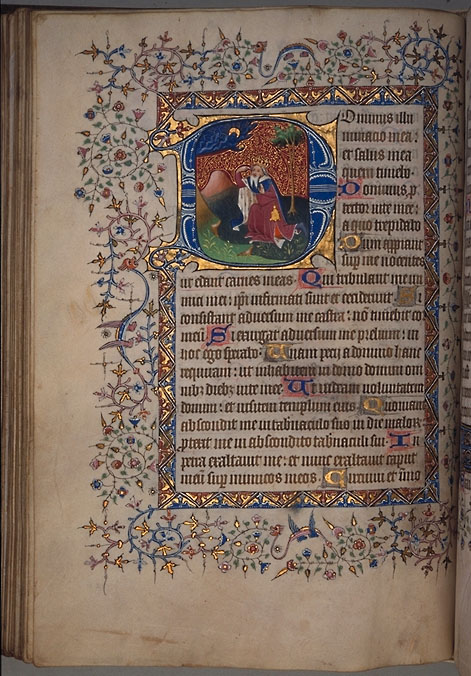 Dominus illu
minacio mea:
et salus mea
quem timebo.
Dominus p
tector vite mee:
a quo trepidabo
Dum appiant
sup me nocentes
ut edant carnes meas. Qui tribulant me ini
mici mei: ipi infirmati sunt et ceciderunt. Si
consistant adversum me castra: nō timebit cor
meū. Si exurgat adversum me preliū: in
hoc ego sperabo. Unam pecij a domino hanc
requiram: ut inhabitem in domo domini om
nibz diebz vite mee. Ut videam voluntatem
domini: et visitem templum eius. Quoniam
abscondit me in tabnaculo suo in die malor:
ptexit me in abscondito tabnaculi sui. In
petra exaltavit me: et nunc exaltavit caput
meū sup inimicos meos. Circuivi et īmo